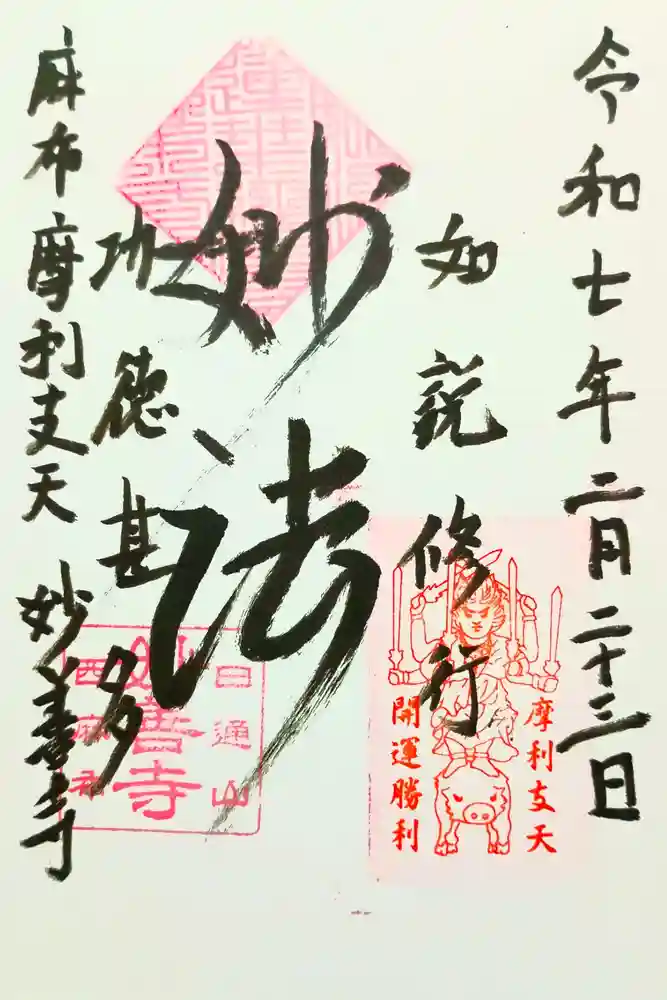 令和七年二月二十三日
如説修行
摩利支天
開運勝利
妙法
功徳甚多
日通山
妙善寺
西麻布
麻布摩利支天 妙善寺